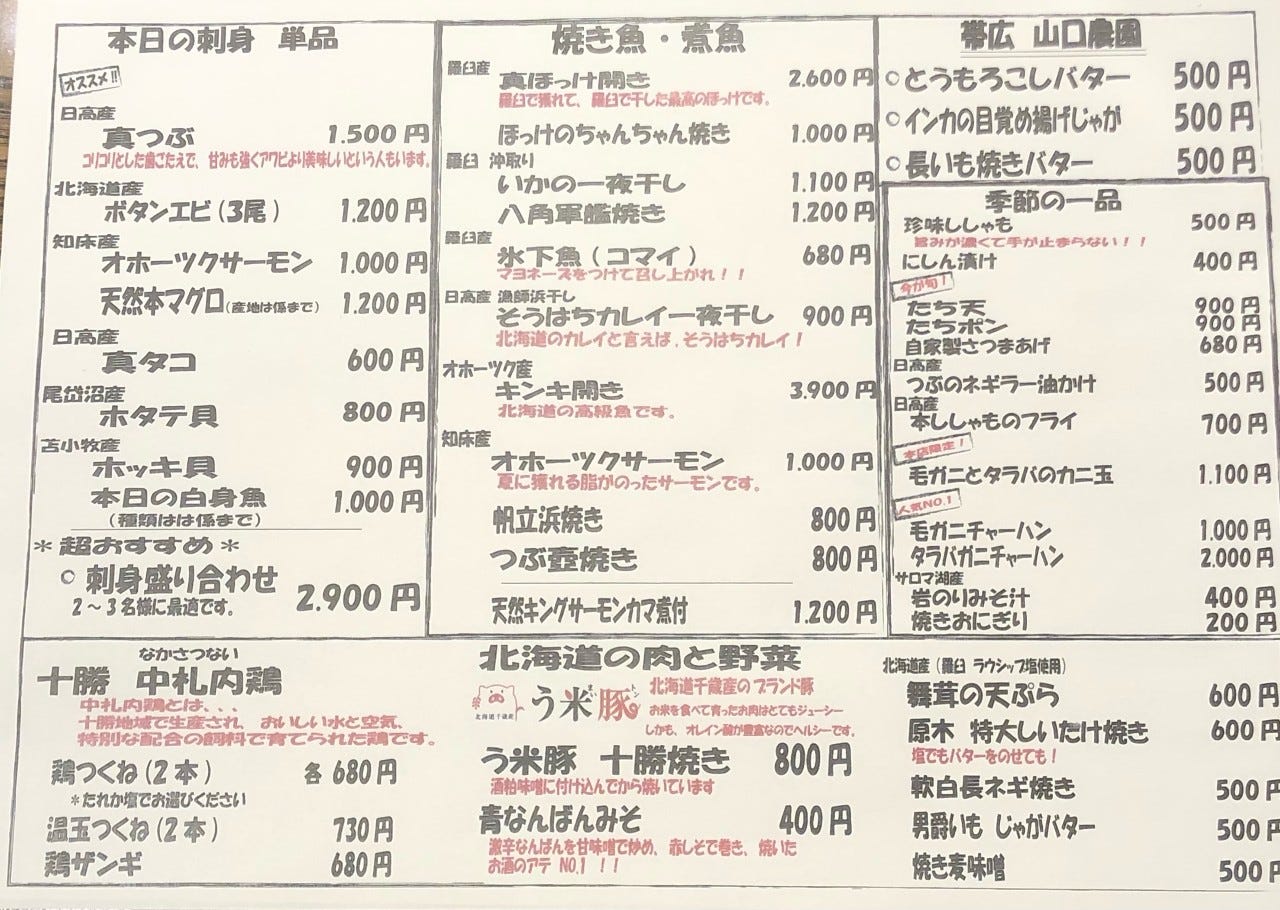 本日の刺身 単品
オススメ!!
日高産
真つぶ 1.500円
コリコリとした歯ごたえで、甘みも強くアワビより美味しいという人もいます。
北海道産
ボタンエビ(3尾) 1.200円
知床産
オホーツクサーモン 1.000円
天然本マグロ(産地は係まで) 1.200円
日高産
真タコ 600円
尾岱沼産
ホタテ貝 800円
苫小牧産
ホッキ貝 900円
本日の白身魚 1.000円
(種類はは係まで)
*超おすすめ*
○刺身盛り合わせ 2.900円
2~3名様に最適です。
焼き魚・煮魚
羅臼産
真ほっけ開き 2.600円
羅臼で獲れて、羅臼で干した最高のほっけです。
ほっけのちゃんちゃん焼き 1.000円
羅臼 沖取り
いかの一夜干し 1.100円
八角軍艦焼き 1.200円
羅臼産
氷下魚(コマイ) 680円
マヨネーズをつけて召し上がれ!!
日高産 漁師浜干し
そうはちカレイ一夜干し 900円
北海道のカレイと言えば、そうはちカレイ!
オホーツク産
キンキ開き 3.900円
北海道の高級魚です。
知床産
オホーツクサーモン 1.000円
夏に獲れる脂がのったサーモンです。
帆立浜焼き 800円
つぶ壺焼き 800円
天然キングサーモンカマ煮付 1.200円
帯広 山口農園
○とうもろこしバター 500円
○インカの目覚め揚げじゃが 500円
○長いも焼きバター 500円
季節の一品
珍味ししゃも 500円
旨みが濃くて手が止まらない!!
にしん漬け 400円
今が旬!
たち天 900円
たちポン 900円
自家製さつまあげ 680円
日高産
つぶのネギラー油かけ 500円
日高産
本ししゃものフライ 700円
本店限定!
毛ガニとタラバのカニ玉 1.100円
人気NO.1
毛ガニチャーハン 1.000円
タラバガニチャーハン 2.000円
サロマ湖産
岩のりみそ汁 400円
焼きおにぎり 200円
なかさつない
十勝 中札内鶏
中札内鶏とは、、、
十勝地域で生産され、おいしい水と空気、
特別な配合の飼料で育てられた鶏です。
鶏つくね(2本) 各680円
*たれか塩でお選びください
温玉つくね(2本) 730円
鶏ザンギ 680円
北海道の肉と野菜
北海道千歳産
う米豚
まい トン
北海道千歳産のブランド豚
お米を食べて育ったお肉はとてもジューシー
しかも、オレイン酸が豊富なのでヘルシーです。
う米豚 十勝焼き 800円
酒粕味噌に付け込んでから焼いています
青なんばんみそ 400円
激辛なんばんを甘味噌で炒め、赤しそで巻き、焼いた
お酒のアテ NO.1 !!
北海道産(羅臼 ラウシップ塩使用)
舞茸の天ぷら 600円
原木 特大しいたけ焼き 600円
塩でもバターをのせても!
軟白長ネギ焼き 500円
男爵いも じゃがバター 500円
焼き麦味噌 500円